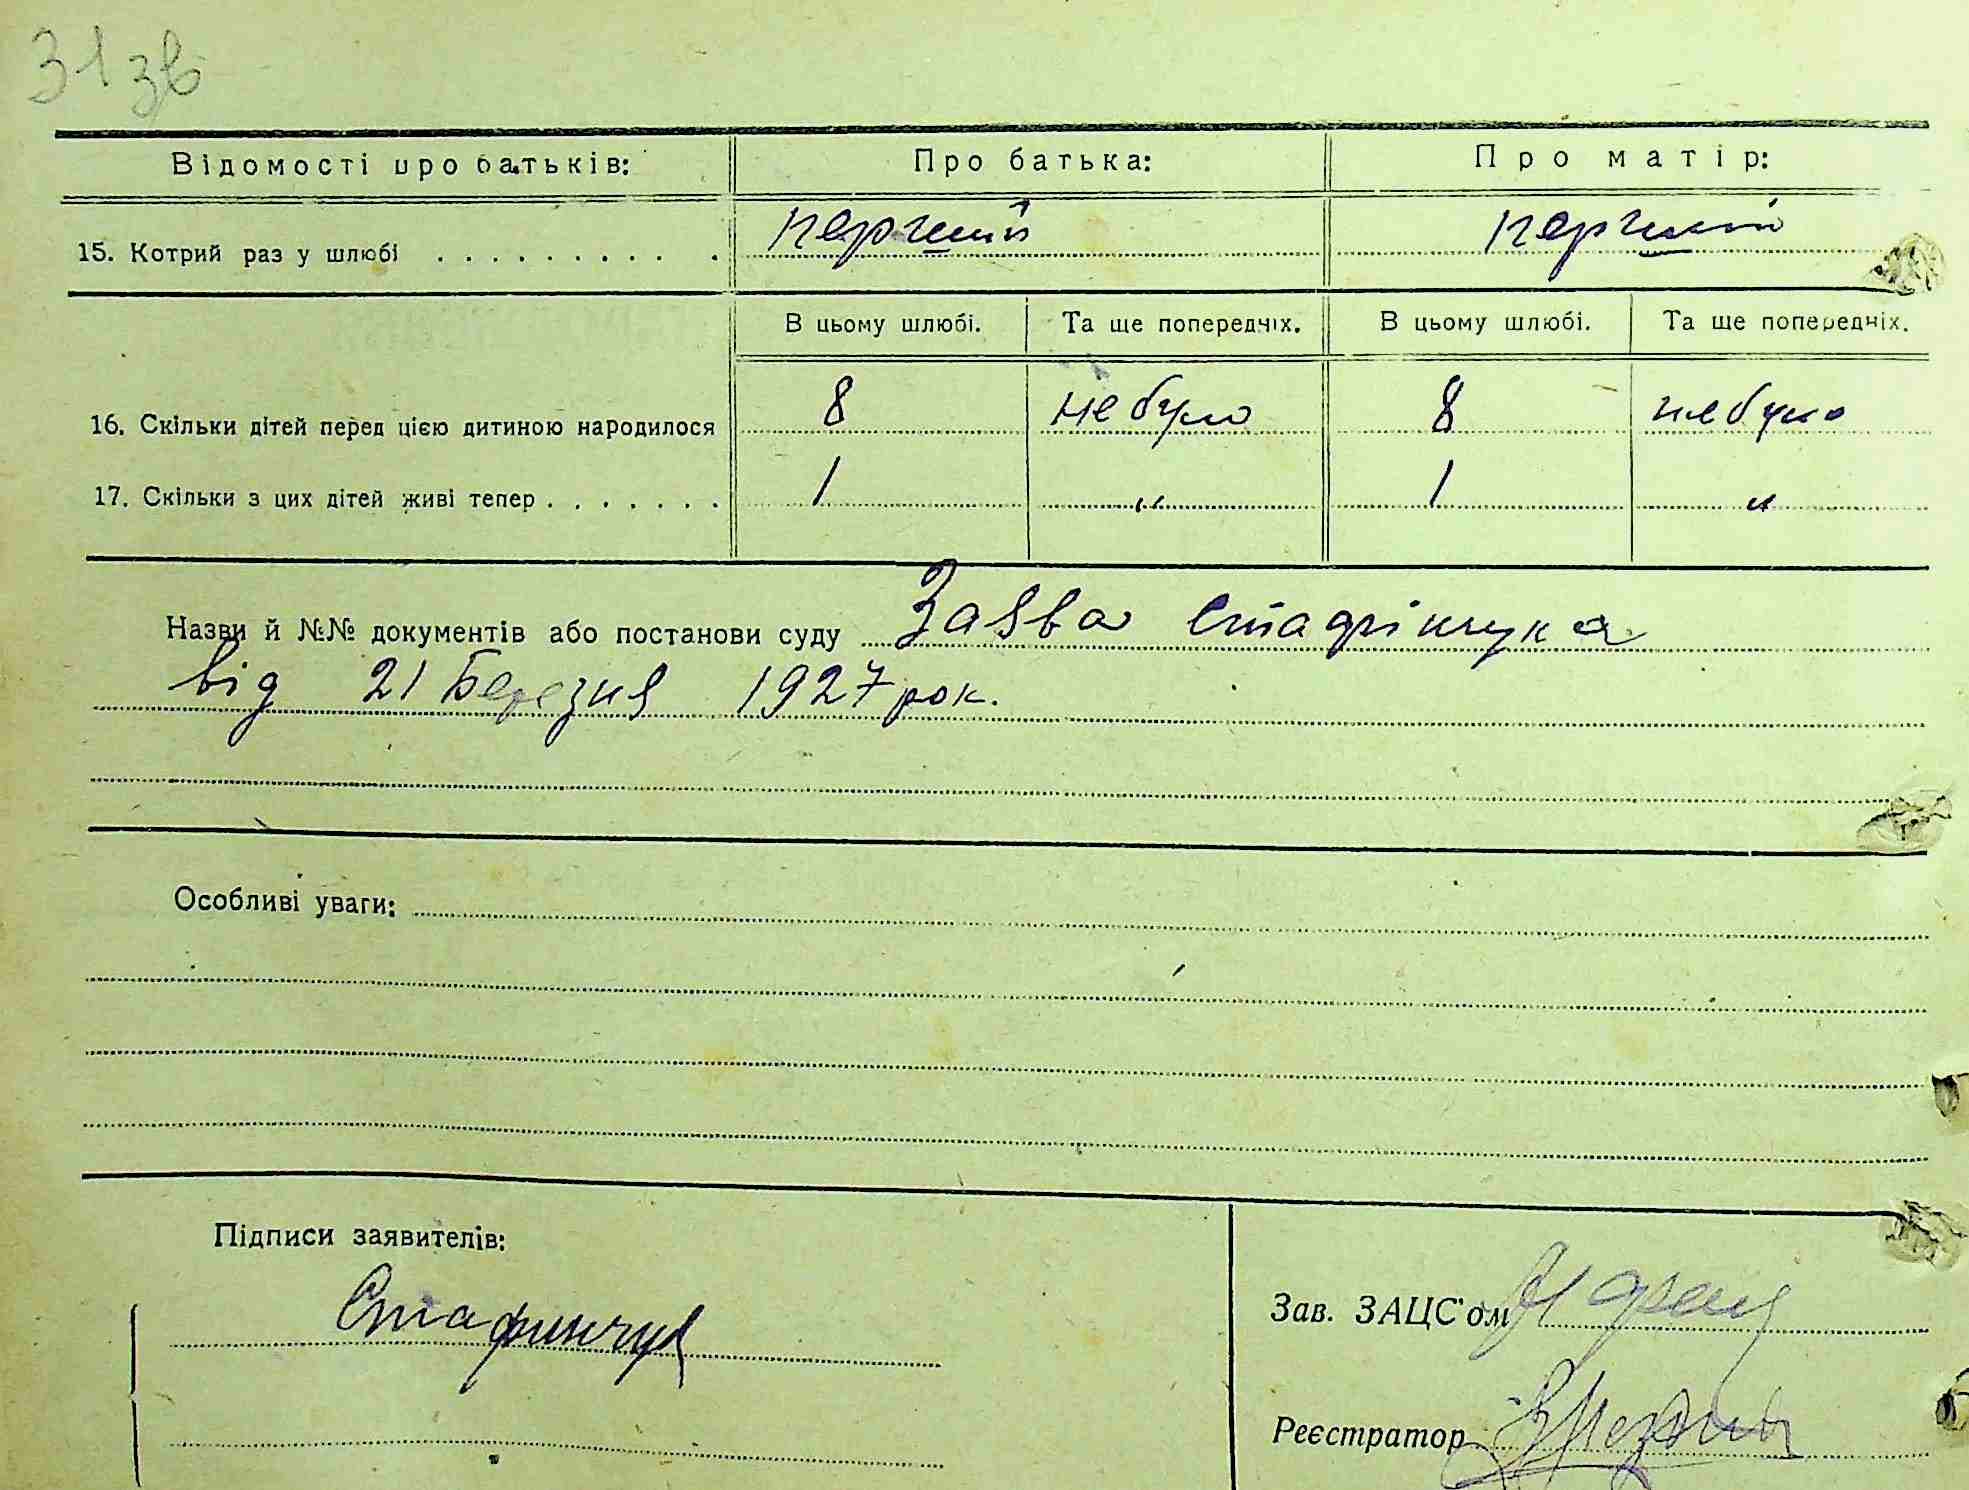 31 зв
Відомості про батьків: Про батька: Про матір:
15. Котрий раз у шлюбі . . . . . . . . . . перший перший
В цьому шлюбі. Та ще попередніх. В цьому шлюбі. Та ще попередніх.
16. Скільки дітей перед цією дитиною народилося 8 не було 8 не було
17. Скільки з цих дітей живі тепер . . . . . . . 1 " 1 "
Назви й №№ документів або постанови суду Заява Стафінчука
від 21 Березня 1927 рок.
Особливі уваги:
Підписи заявителів:
Стафинчук
Зав. ЗАЦС'ом
Реєстратор